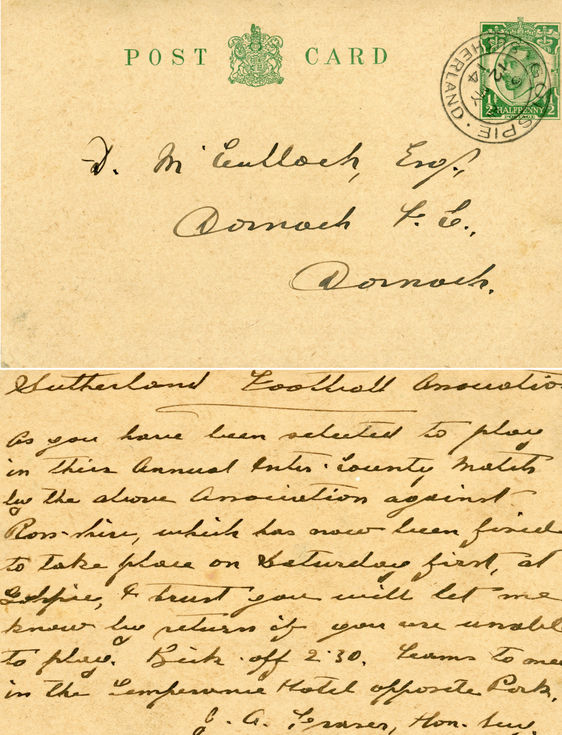 POST CARD
GOLSPIE · SUTHERLAND
14
HALFPENNY
½ ½
D. McCulloch, Esq.,
Dornoch F. C.,
Dornoch.
Sutherland Football Associatio
As you have been selected to play
in this Annual Inter-County Match
by the above Association against
Ross-shire, which has now been fixed
to take place on Saturday first, at
Golspie, I trust you will let me
know by return if you are unabl
to play. Kick-off 2.30. Teams to mee
in the Temperance Hotel opposite Park.
J. A. Fraser, Hon. Secy.